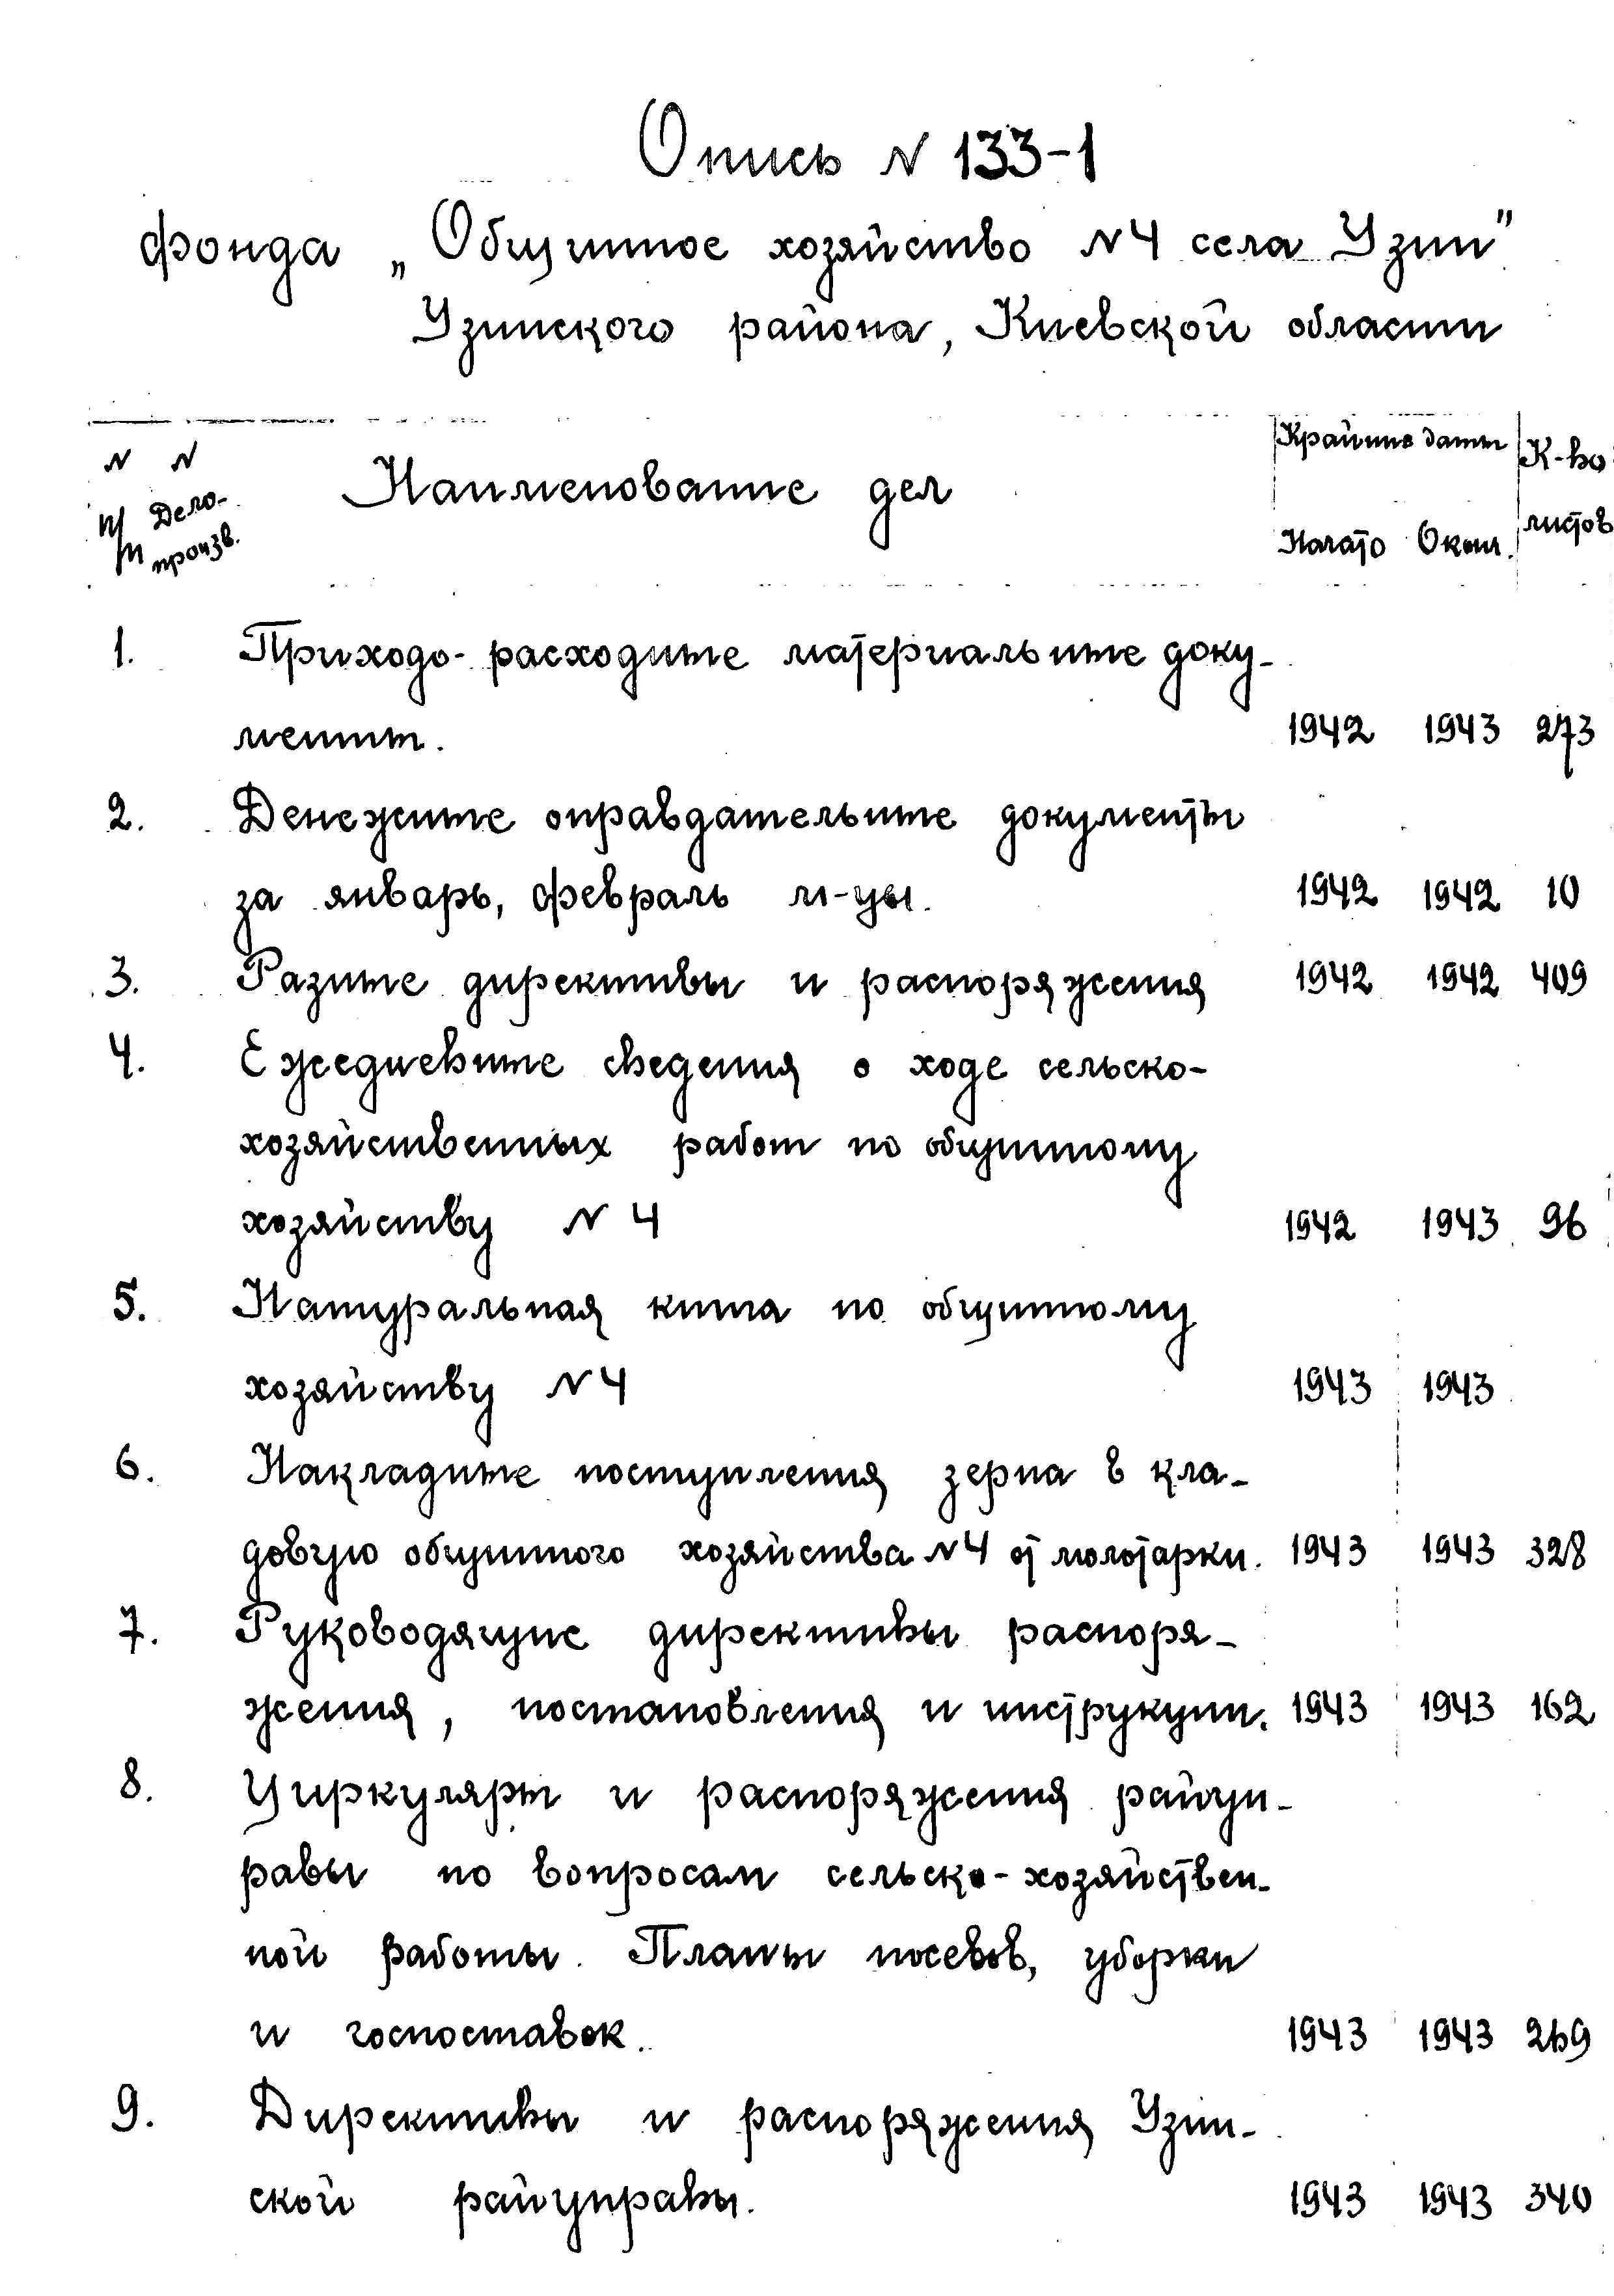 Опись N 133-1
фонда „Общинное хозяйство N4 села Узин"
Узинского района, Киевской области
N N Наименование дел Крайние даты К-во
п/п Дело-произв. Начато Оконч. листов
1. Приходо-расходные материальные доку-
менты. 1942 1943 273
2. Денежные оправдательные документы
за январь, февраль м-цы. 1942 1942 10
3. Разные директивы и распоряжения 1942 1942 409
4. Ежедневные сведения о ходе сельско-
хозяйственных работ по общинному
хозяйству N 4 1942 1943 96
5. Натуральная книга по общинному
хозяйству N4 1943 1943
6. Накладные поступления зерна в кла-
довую общинного хозяйства N4 от молотарки. 1943 1943 328
7. Руководящие директивы распоря-
жения, постановления и инструкции. 1943 1943 162
8. Циркуляры и распоряжения райуп-
равы по вопросам сельско-хозяйствен-
ной работы. Планы посевов, уборки
и госпоставок. 1943 1943 269
9. Директивы и распоряжения Узин-
ской райуправы. 1943 1943 340